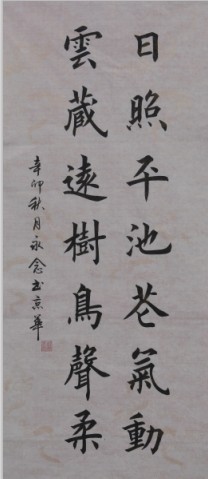 日照平池花氣動
雲蔵遠樹鳥聲柔
辛卯秋月永念書京華